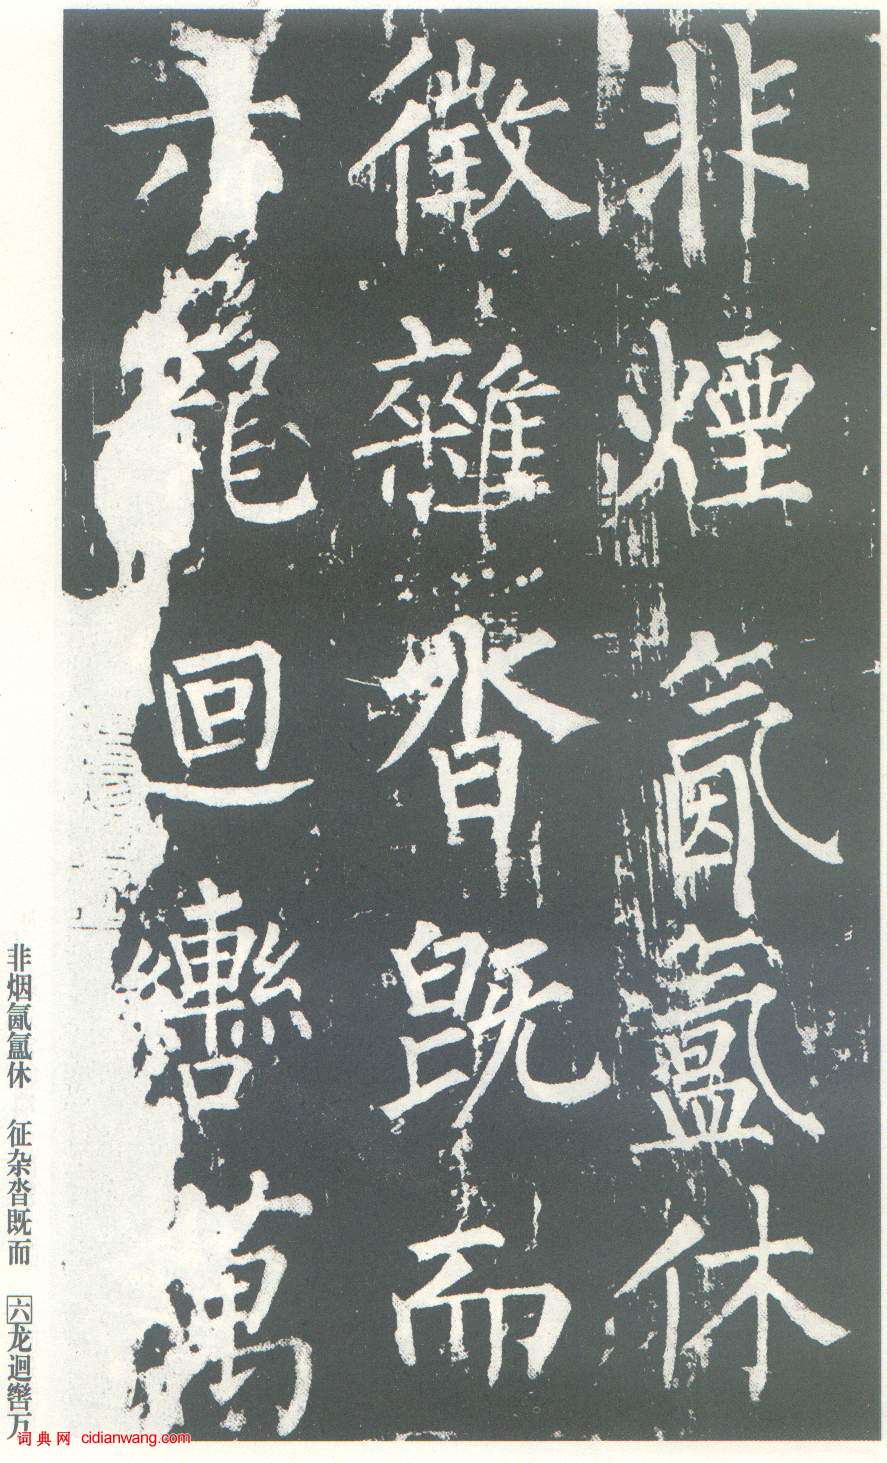 非煙氤氳休
徵雜沓既而
龍迴轡萬
非烟氤氲休 征杂沓既而 六龙迴辔万
词典网 cidianwang.com